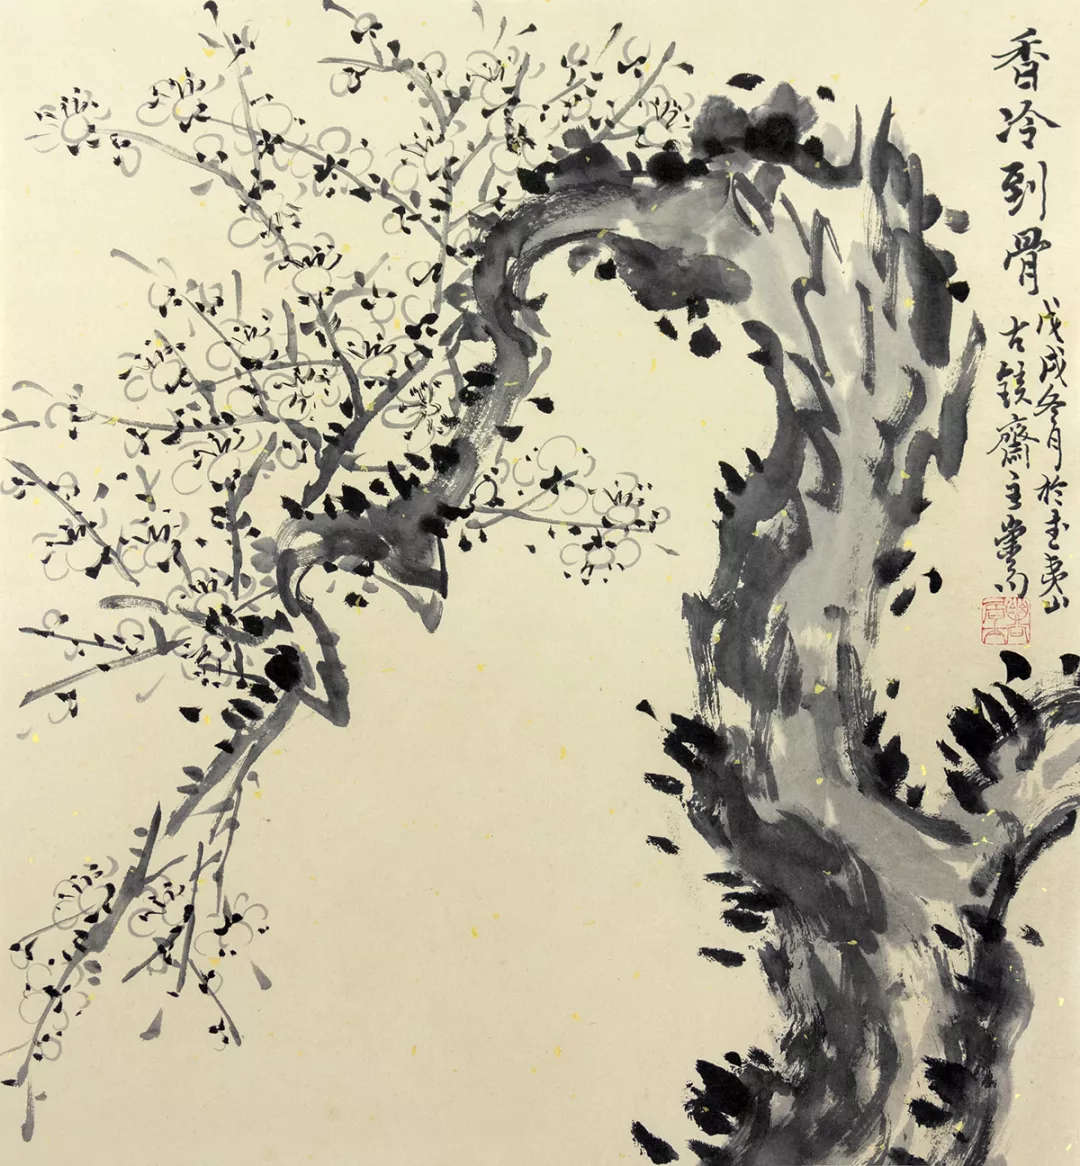 香冷到骨
戊戌冬月於武夷山
古鏡齋主